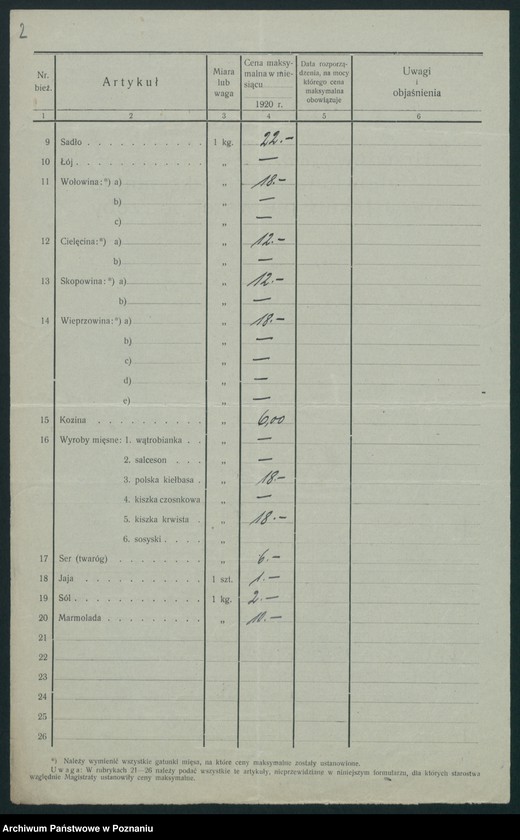 2
Nr. bież. | Artykuł | Miara lub waga | Cena maksymalna w miesiącu 1920 r. | Data rozporządzenia, na mocy którego cena maksymalna obowiązuje | Uwagi i objaśnienia
1 | 2 | 3 | 4 | 5 | 6
9 Sadło . . . . . . . . . . . 1 kg. 22.—
10 Łój . . . . . . . . . . . . „ —
11 Wołowina:*) a) „ 18.—
b) „ —
c) „ —
12 Cielęcina:*) a) „ 12.—
b) „ —
13 Skopowina:*) a) „ 12.—
b) „ —
14 Wieprzowina:*) a) „ 18.—
b) „ —
c) „ —
d) „ —
e) „ —
15 Kozina . . . . . . . . . . „ 6,00
16 Wyroby mięsne: 1. wątrobianka . . „ —
2. salceson . . . „ —
3. polska kiełbasa . „ 18.—
4. kiszka czosnkowa „ —
5. kiszka krwista . „ 18.—
6. sosyski . . . . „
17 Ser (twaróg) . . . . . . . . „ 6.—
18 Jaja . . . . . . . . . . . 1 szt. 1.—
19 Sól . . . . . . . . . . . . 1 kg. 2.—
20 Marmolada . . . . . . . . . „ 10.—
21
22
23
24
25
26
*) Należy wymienić wszystkie gatunki mięsa, na które ceny maksymalne zostały ustanowione.
Uwaga: W rubrykach 21—26 należy podać wszystkie te artykuły, nieprzewidziane w niniejszym formularzu, dla których starostwa
względnie Magistraty ustanowiły ceny maksymalne.
Archiwum Państwowe w Poznaniu